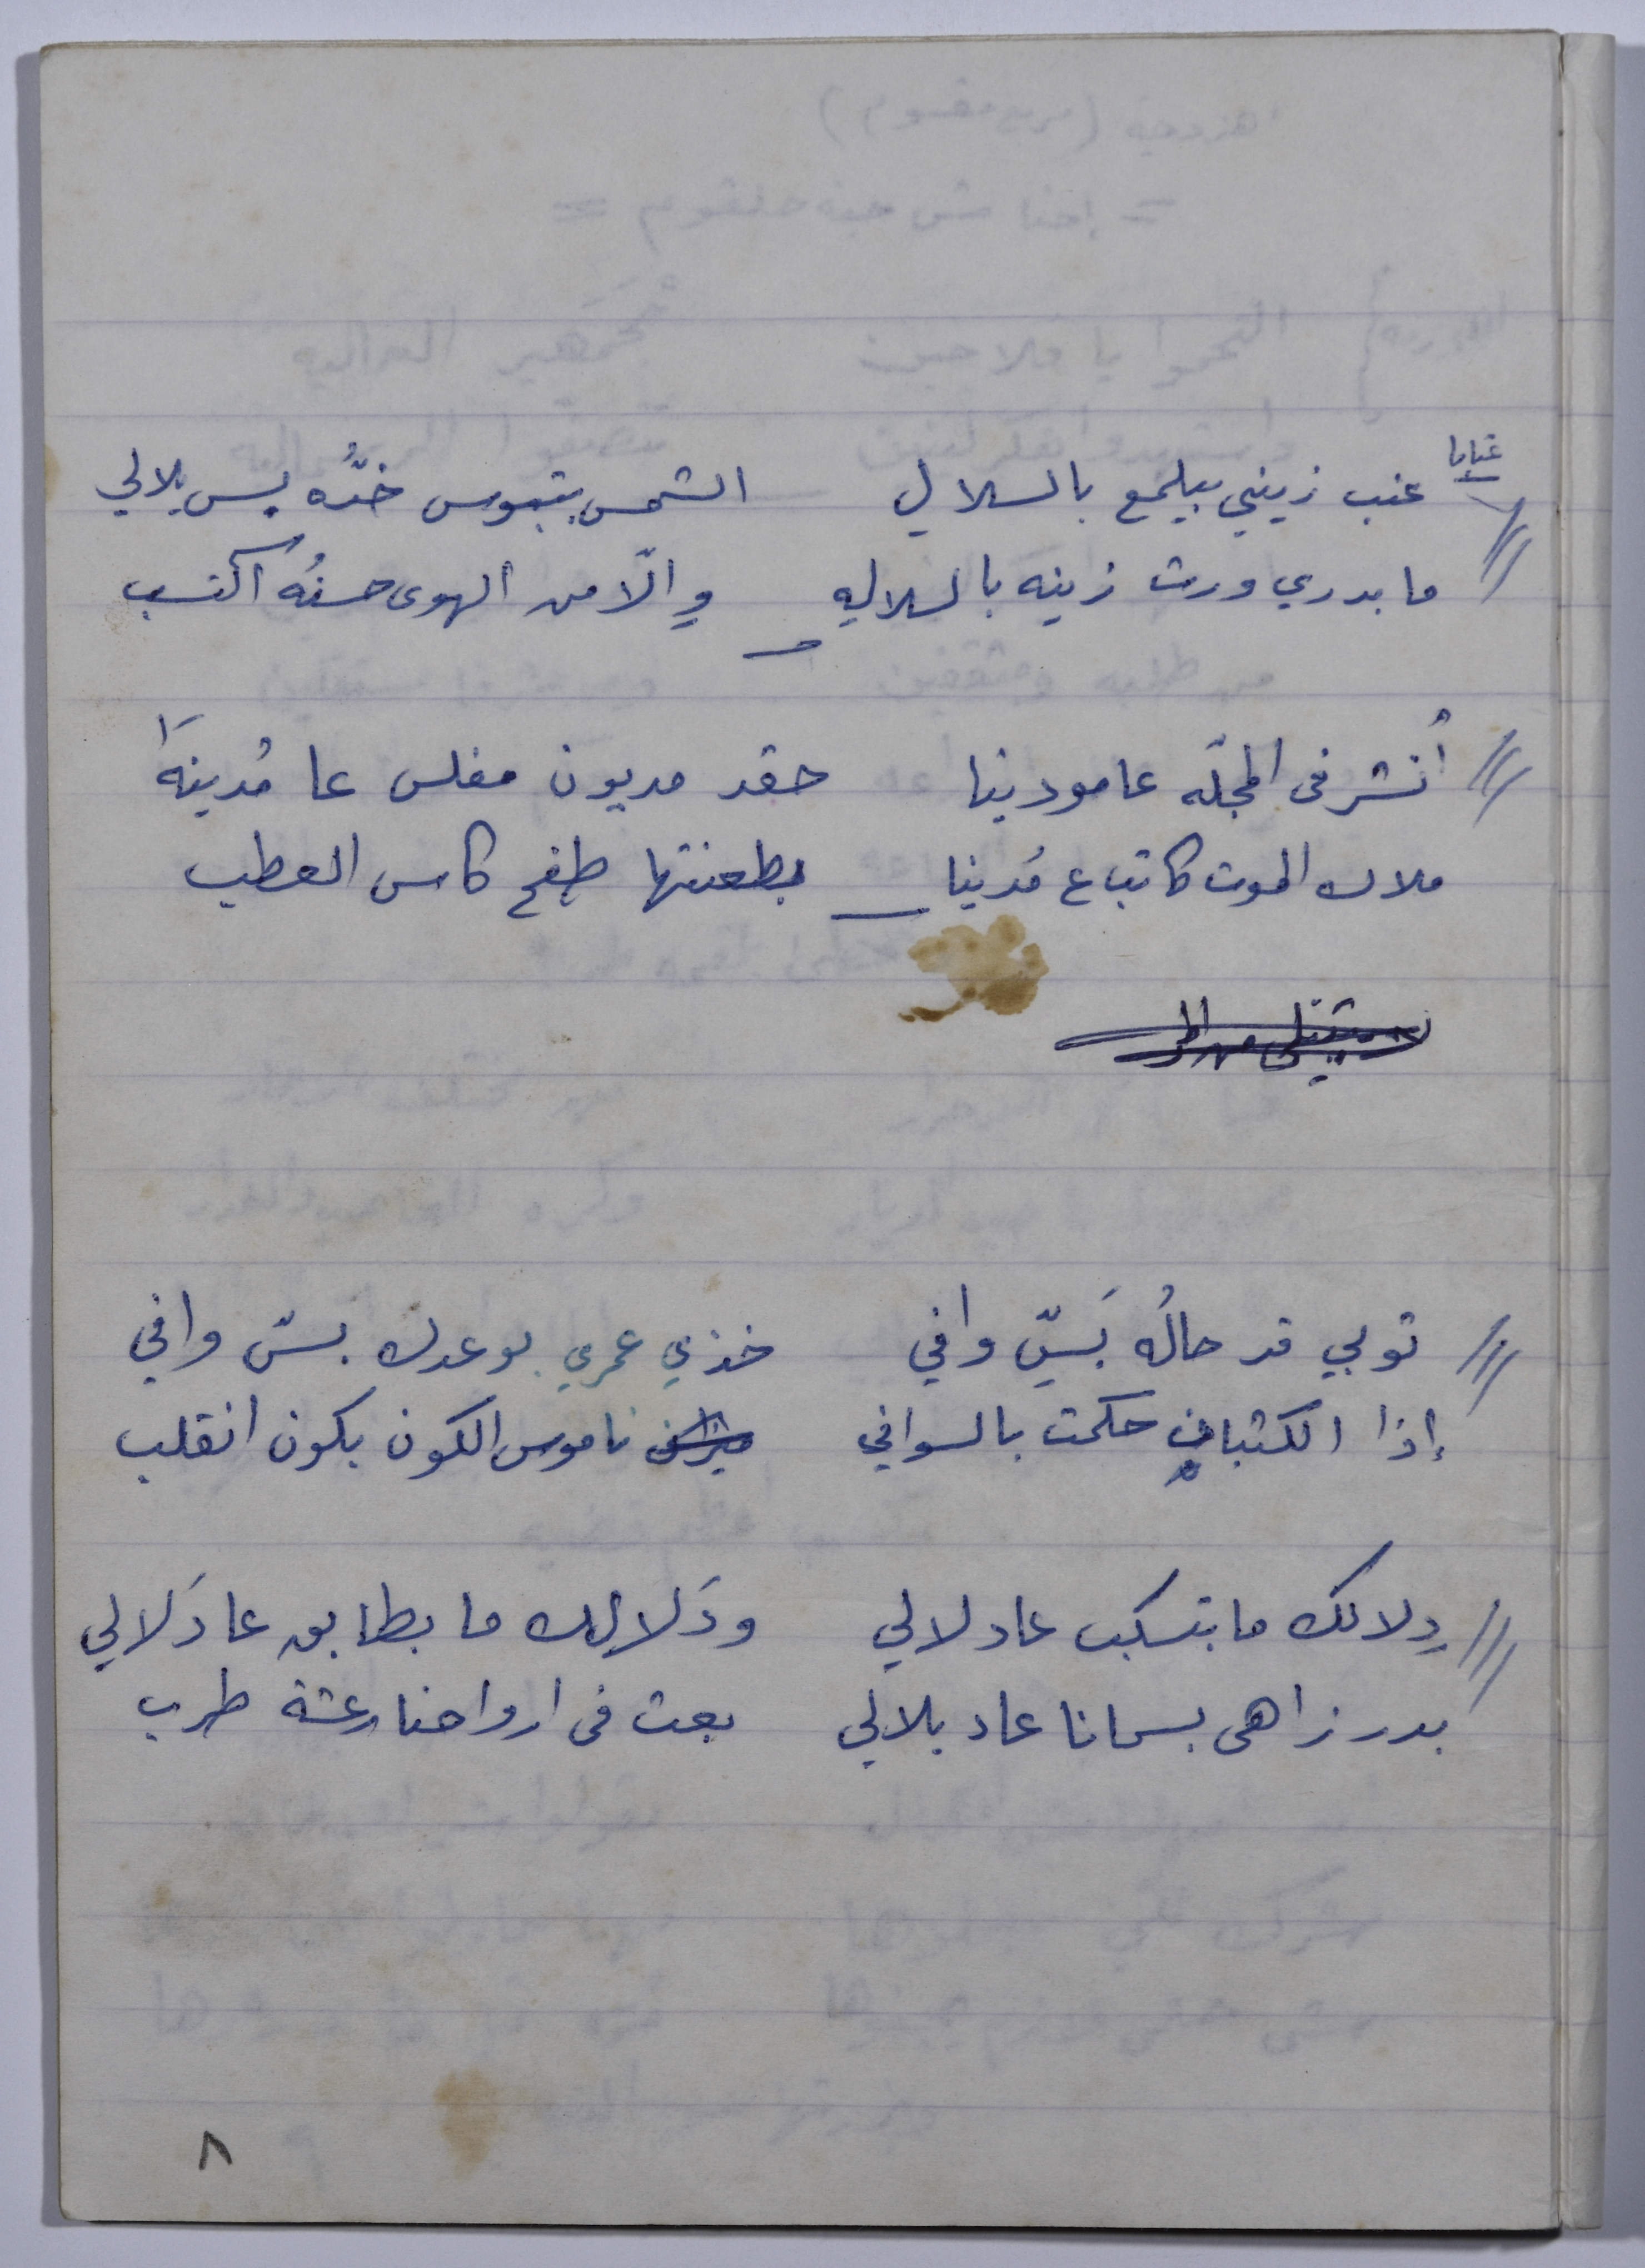 عتابا
عنب زيني بيلمع بالسلالِ الشمس بتبوس خدُّه بس يلالي
ما بدري ورث زينه بالسلاله وإلّا من الهوى حسنُه اكتسب
أُنشر في المجلّه عامودينا حقد مديون مفلس عا مُدينَا
ملاك الموت كاتب ع مُدينا بطعنتها طفح كاس العطب
توبي قد حالُه بَسّ وافي خذي عمري بوعدك بسّ وافي
إذا الكثبان حكمت بالسوافي ناموس الكون بكون انقلب
دِلالك ما بتسكب عادلالي ودَلالِك ما بطابق عا دَلالي
بدر زاهي بسمانا عاد يلالي بعث في ارواحنا رعشة طرب
٨